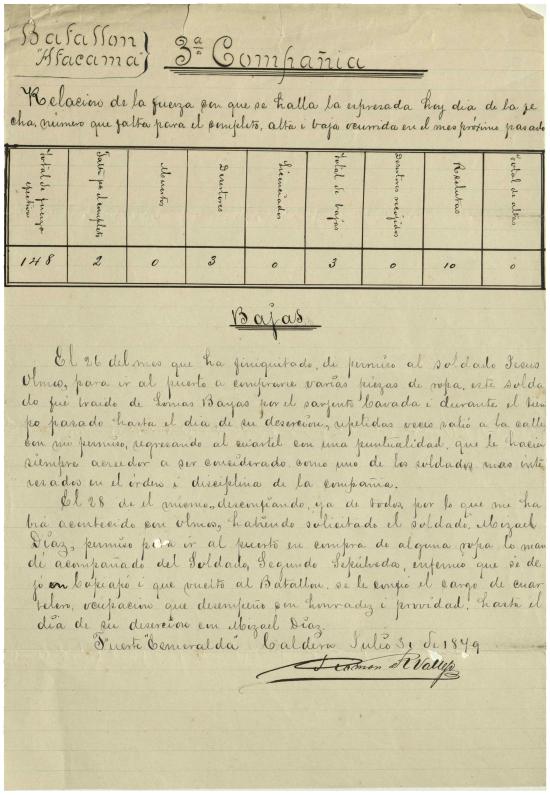 Batallon
"Atacama"
3ª Compañia
Relacion de la fuerza con que se halla la espresada hoy dia de la fe
cha, número que falta para el completo, alta i baja ocurrida en el mes próximo pasado
Total de fuerza efectiva
Falta pa el completo
Muertos
Desertores
Licenciados
Total de bajas
Desertores recojidos
Reclutas
Total de altas
148 2 0 3 0 3 0 10 0
Bajas
El 26 del mes que ha finiquitado, di permiso al soldado Jesus
Olmos, para ir al puerto a comprarse varias piezas de ropa, este solda
do fué traido de Lomas Bayas por el sarjento Cavada i durante el tiem
po pasado hasta el dia de su deserción, repetidas veces salió a la calle
con mi permiso, regresando al cuartel con una puntualidad, que le hacian
siempre acreedor a ser considerado como uno de los soldados mas inte
resados en el órden i disciplina de la compañia.
El 28 de el mismo, desconfiando, ya de todos, por lo que me ha
bia acontecido con Olmos, habiendo solicitado el soldado, Mizael
Díaz, permiso para ir al puerto en compra de alguna ropa lo man
dé acompañado del Soldado, Segundo Sepúlveda, enfermo que se de
jó en Copiapó i que vuelto al Batallon se le confió el cargo de cuar
telero, ocupacion que desempeñó con honradez i providad, hasta el
dia de su desercion con Mizael Díaz.
Fuerte "Esmeralda" Caldera Julio 31 de 1879
Ramon R Vallejo